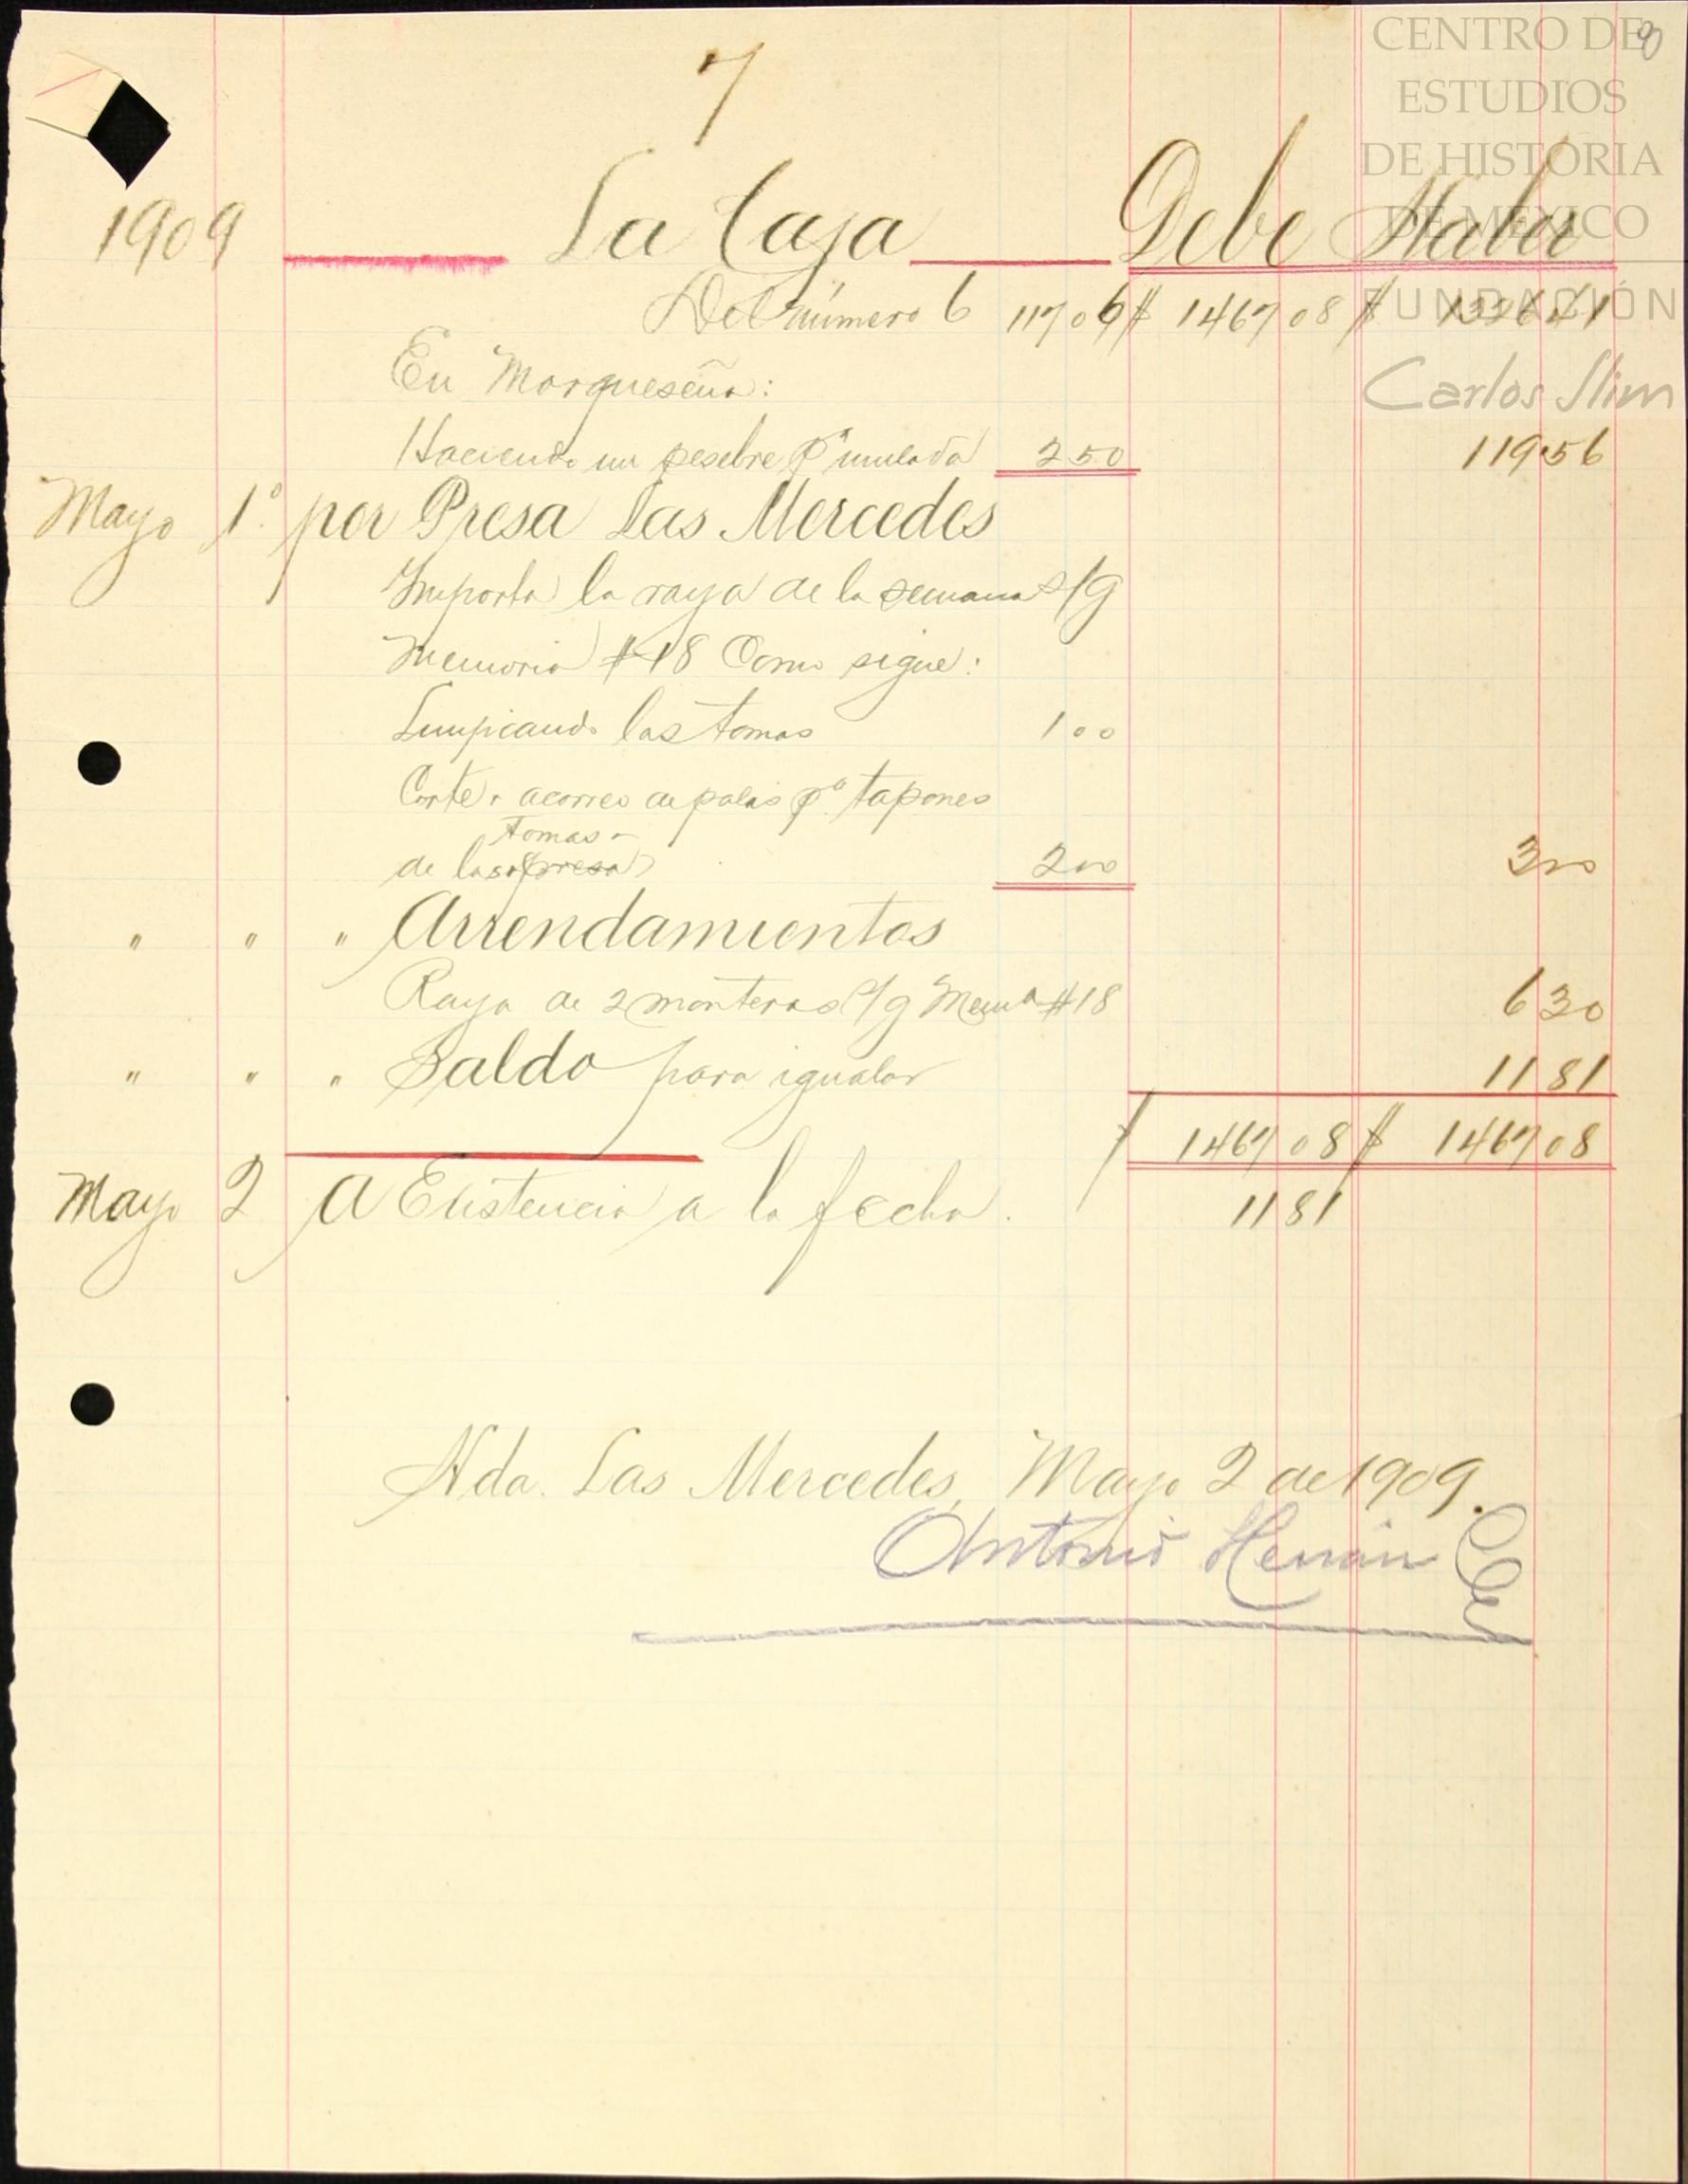 8
7
1909 La Caja Debe Haber
Del número 6 117 06 $ 1467 08 $ 1326 41
En Marqueseña:
Haciendo un pesebre pª mulada 2 50 119 56
Mayo 1º por Presa Las Mercedes
Importa la raya de la semana s/g
Memoria #18 Como sigue:
Limpiando las tomas 1 00
Corte y acarreo de palos pª tapones
tomas
de las presa 2 00 3 00
" " " Arrendamientos
Raya de 2 monteros s/g Memª #18 6 30
" " " Saldo para igualar 11 81
$ 1467 08 $ 1467 08
Mayo 2 A Existencia a la fecha. 11 81
Hda. Las Mercedes, Mayo 2 de 1909.
Antonio
CENTRO DE
ESTUDIOS
DE HISTORIA
DE MÉXICO
FUNDACIÓN
Carlos Slim